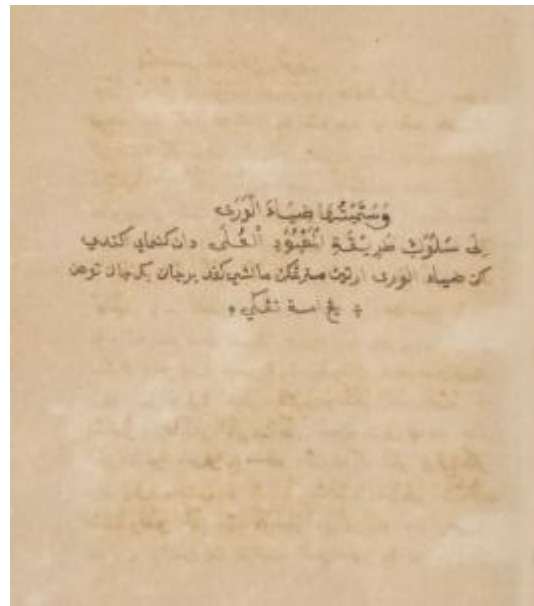 وَسَمَّيْتُهَا ضِيَاءَ الْوَرَى
إِلَى سُلُوْكِ طَرِيْقَةِ الْمَعْبُوْدِ الْعُلَى دان كنماي كندي
كن ضياء الورى ارتين منرڠكن ماأنسي كفد برجالن بكرجان توهن
يڠ امة تڠݢي